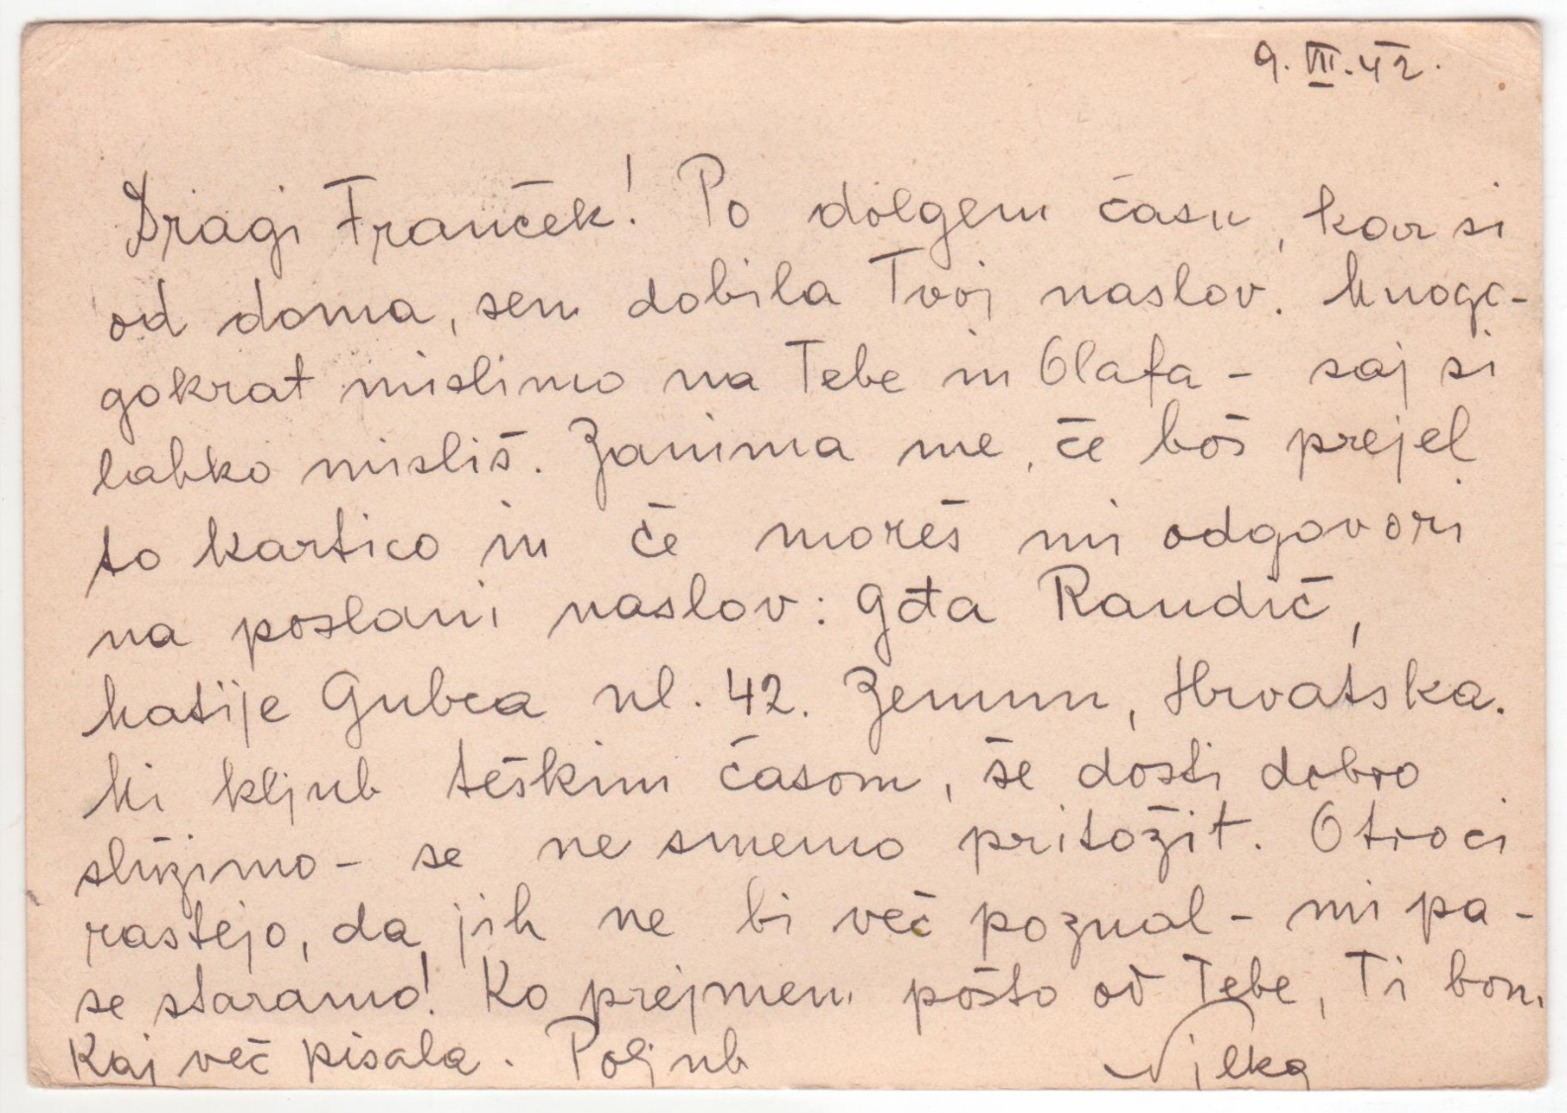 9. VII. 42.
Dragi Franček! Po dolgem času, kar si
od doma, sem dobila Tvoj naslov. Mnogo-
gokrat mislimo na Tebe in Olafa - saj si
lahko misliš. Zanima me, če boš prejel
to kartico in če moreš mi odgovori
na poslani naslov: Gđa Randić,
Matije Gubca ul. 42. Zemun, Hrvatska.
Mi kljub teškim časom, še dosti dobro
slúžimo - se ne smemo pritožit. Otroci
rastejo, da jih ne bi več poznal - mi pa -
se staramo! Ko prejmem pošto od Tebe, Ti bom
kaj več pisala. Poljub Vilka